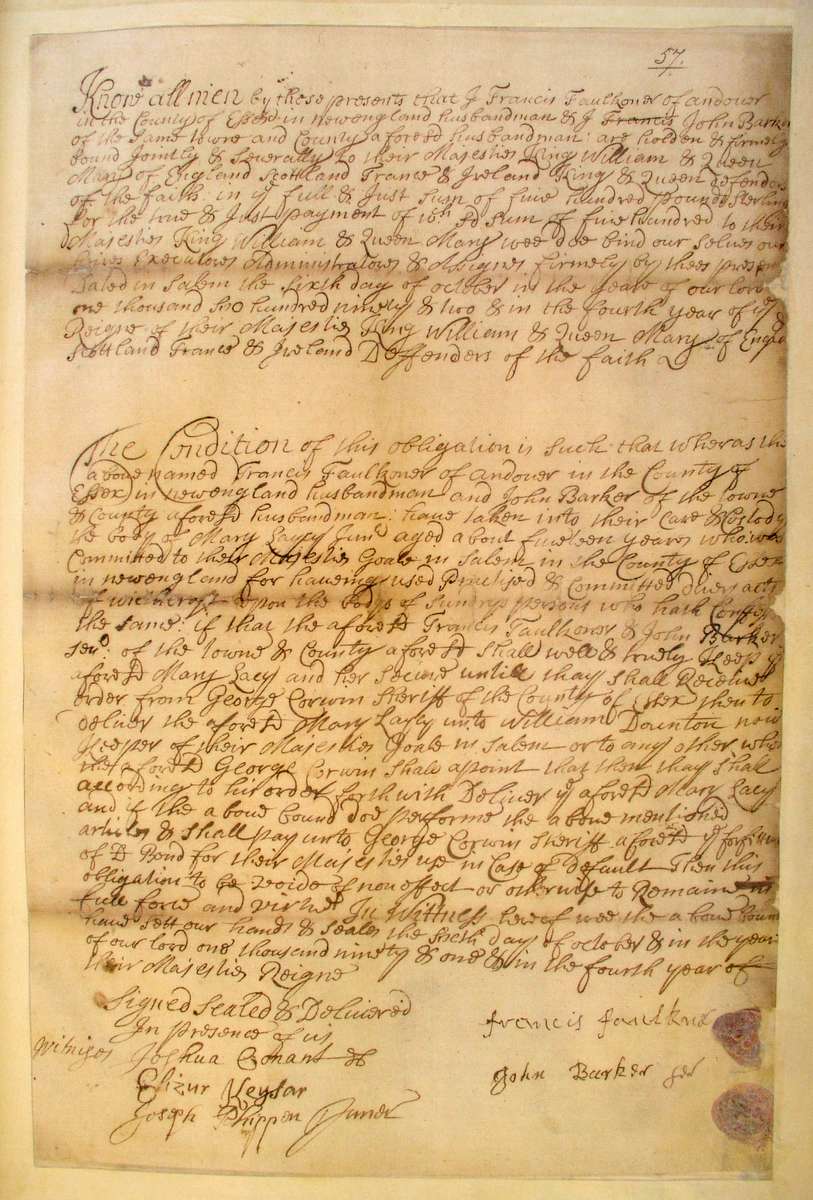 57.
Know all men by these presents that I Francis Faulkoner of andover
in the County of Essex in newengland husbandman & I Francis John Barker
of the Same towne and County aforesd husbandman: are holden & firmely
bound Joyntly & Severally to their Majesties King William & Queen
Mary of England Scottland France & Ireland King & Queen defenders
of the faith: in ye full & Just Sum of five hundred pounds Sterling
for the true & Just payment of wch sd Sum of five hundred to their
Majesties King William & Queen Mary wee doe bind our Selves our
heires Executores Administratores & Assignes firmely by thees presents
Dated in Salem the Sixth day of october in the yeare of our lord
one thousand Six hundred ninety & two & in the fourth year of ye
Reigne of their Majesties King William & Queen Mary of Engl
Scottland France & Ireland Deffenders of the faith
The Condition of this obligation is Such that wheras the
above named Francis Faulkoner of andover in the County of
Essex in newengland husbandman and John Barker of the towne
& County aforesd husbandman: have taken into their Care & Custody
the body of Mary Lacy Junr aged about fiveteen yeares who was
Committed to their Majesties Goale in Salem in the County of Essex
in newengland for haveing used Practised & Committed divers acts
of witchcraft upon the bodys of Sundry persons who hath Confes
the Same: if that the aforesd Francis Faulkoner & John Barker
senr: of the towne & County aforesd Shall well & truely Keep ye
aforesd Mary Lacy and her Secure untill thay Shall Receive
order from George Corwin Sheriff of the County of Essex then to
deliver the aforesd Mary Lacy unto William Dounton now
Keeper of their Majesties Goale in Salem or to any other whom
the aforesd George Corwin Shall apoint that then thay Shall
according to his order forth with Deliver ye aforesd Mary Lacy
and if the above bound doe performe the above mentioned
articles & Shall pay unto George Corwin Sheriff aforesd ye forfiture
of sd Bond for their Majesties use in Case of Default Then this
obligation to be voide of non effect or otherwise to Remaine in
full force and virtue In Wittness hereof wee the above bound
have sett our hands & Seales this Sixth day of october & in the year
of our lord one thousand ninety & one & in the fourth year of
their Majesties Reigne
Signed Sealed & Delivered
In presence of us
Witnises Joshua Conant
Elizur Keysar
Joseph Phippen Juner
francis faulkner
John Barker ser